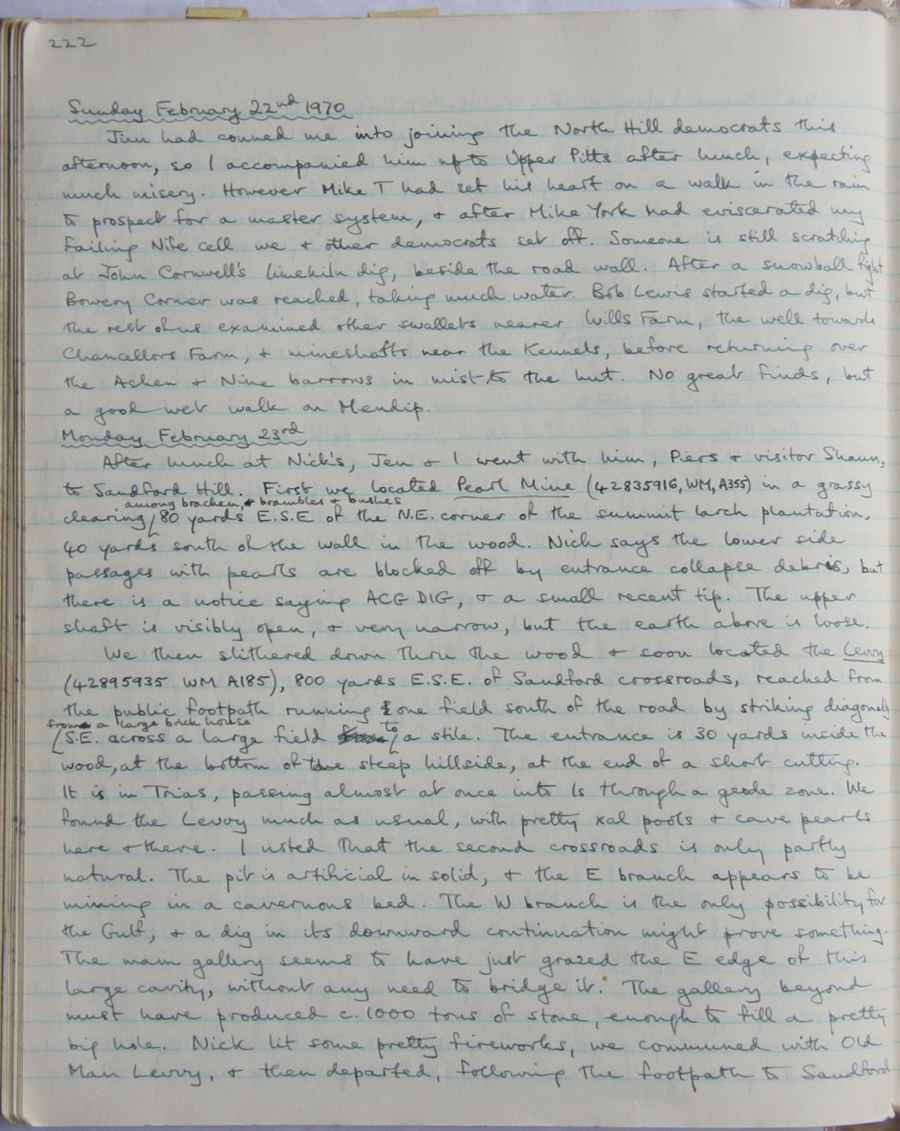 222
Sunday February 22nd 1970
Jim had conned me into joining the North Hill democrats this
afternoon, so I accompanied him up to Upper Pitts after lunch, expecting
much misery. However Mike T had set his heart on a walk in the rain
to prospect for a master system, & after Mike York had eviscerated my
failing Nife cell we & other democrats set off. Someone is still scratching
at John Cornwell's limekiln dig, beside the road wall. After a snowball fight
Bowery Corner was reached, taking much water. Bob Lewis started a dig, but
the rest of us examined other swallets nearer Wills Farm, the well towards
Chancellors Farm, & mineshafts near the Kennels, before returning over
the Ashen & Nine barrows in mist, to the hut. No great finds, but
a good wet walk on Mendip.
Monday February 23rd
After lunch at Nick's, Jen & I went with him, Piers & visitor Shaun,
to Sandford Hill. First we located Pearl Mine (42835916, WM, A355) in a grassy
among bracken, & brambles & bushes
clearing 80 yards E.S.E of the N.E. corner of the summit larch plantation,
40 yards south of the wall in the wood. Nick says the lower side
passages with pearls are blocked off by entrance collapse debris, but
there is a notice saying ACG DIG, & a small recent tip. The upper
shaft is visibly open, & very narrow, but the earth above is loose.
We then slithered down thru the wood & soon located the Levvy
(42895935 WM A185), 800 yards E.S.E. of Sandford crossroads, reached from
the public footpath running one field south of the road by striking diagonally
from a large brick house to
S.E. across a large field a stile. The entrance is 30 yards inside the
wood, at the bottom of the steep hillside, at the end of a short cutting.
It is in Trias, passing almost at once into ls through a geode zone. We
found the Levvy much as usual, with pretty xal pools & cave pearls
here & there. I noted that the second crossroads is only partly
natural. The pit is artificial in solid, & the E branch appears to be
mining in a cavernous bed. The W branch is the only possibility for
the Gulf, & a dig in its downward continuation might prove something.
The main gallery seems to have just grazed the E edge of this
large cavity, without any need to bridge it. The gallery beyond
must have produced c.1000 tons of stone, enough to fill a pretty
big hole. Nick lit some pretty fireworks, we communed with Old
Man Levvy, & then departed, following the footpath to Sandford